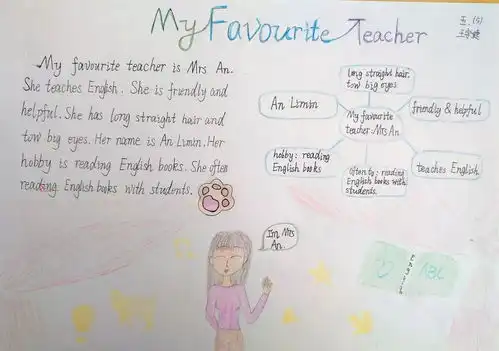 My Favourite Teacher
五.(5)
My favourite teacher is Mrs An.
She teaches English. She is friendly and
helpful. She has long straight hair and
tow big eyes. Her name is An Limin. Her
hobby is reading English books. She often
reading English books with students.
long straight hair.
tow big eyes
An Limin
My favourite
teacher-Mrs An.
friendly & helpful
hobby: reading
English books
often to: reading
English books with
students.
teaches English.
I'm Mrs
An.
ENGLISH
ABC